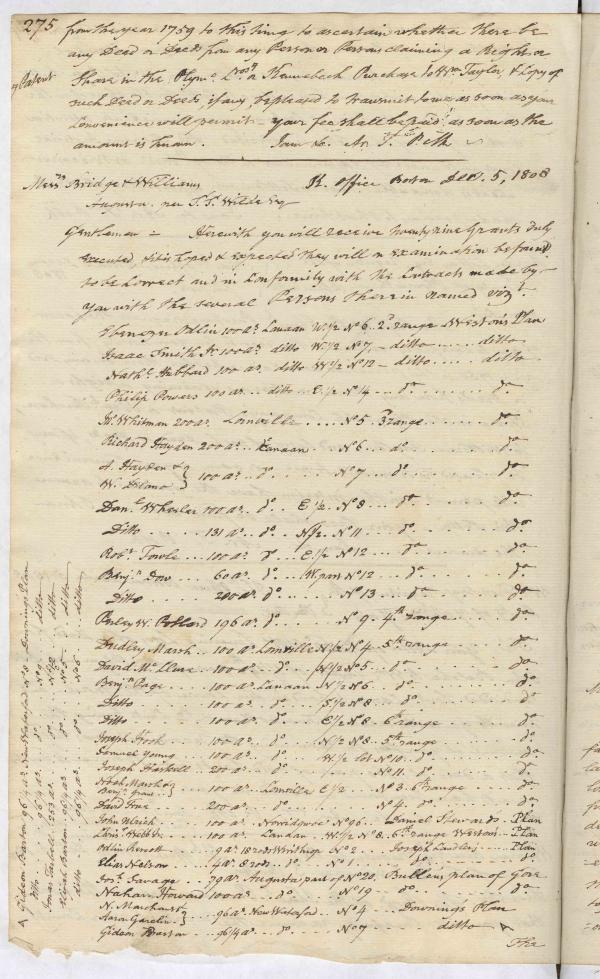 275
from the year 1759 to this time to ascertain whether there be
any Deed or Deeds from any Person or Persons claiming a Right or
Share in the Plymo. Propy. or Kennebeck Purchase to Wm. Taylor, & Copy of
such Deed or Deeds, if any be pleased to transmit to me as soon as your
Convenience will permit - your fee shall be paid as soon as the
amount is known. I am &c. Ar. T. Peck
Messrs. Bridge & Williams
K. Office Boston Decr. 5, 1808
Augusta. per S. S. Wilde Esq
Gentlemen = Herewith you will receive Twenty nine Grants duly
executed, & it is hoped & expected they will on examination be found
to be correct and in Conformity with the Contracts made by
you with the several Persons therein named vizt.
Ebenezer Odlin 100 as. Canaan W. 1/2 No 6 2d. range Weston's Plan
Isaac Smith Jr. 100 as. ditto W. 1/2 No 7, - ditto ..... ditto
Nathl. Hubbard 100 as. ditto W 1/2 No 12 - ditto .... ditto
Philip Powers 100 as... ditto.. E. 1/2 No 14 .... do. ..... do.
Whitman 200 as. Cornville .... No 5. 3 range ..... do.
Richard Hayden 200 as... Canaan .. No 6 .. do. .... do.
A. Hayden &
W. Delano } 100 as. .. do. .... No 7 ... do. .... do.
Danl. Wheeler 100 as. .. do. .. E 1/2 No 8 ... do. .... do.
Ditto .... 131 as. .. do. .. N 1/2 No 11 ... do. .... do.
Robt. Towle ... 100 as. do. ... E. 1/2 No 12 ... do. .... do.
Benjn. Dow .... 60 as. .. do. ... W. part No 12 ... do. ... do.
Ditto ..... 200 as. .. do. ..... No 13 ... do. .... do.
Perley W. 196 as. do. ..... No 9. 4th range .... do.
Dudley Marsh .. 100 as. Cornville N 1/2 No 4. 5th range .... do.
David McLure .. 100 as. .. do. ... No 5 .. do. ..... do.
Benjn. Page .... 100 as. Canaan N 1/2 No 6 ... do. .... do.
Ditto ..... 100 as. .. do. .. S 1/2 No 8 ... do. ..... do.
Ditto ..... 100 as. .. do. .. E 1/2 No 8. 6th range .... do.
Joseph 100 as. .. do. .. N 1/2 No 8. 5th range .... do.
Samuel Young ... 100 as. .. do. .. W. 1/2 lot No 10. do. .... do.
Joseph Haskell .. 200 as. .. do. .... No 11 .. do. .... do.
Noah Marsh &
Benjn. } .. 100 as. Cornville E 1/2 No 3. 6th range .... do.
David 200 as. .. do. .... No 4 .. do. .... do.
John Ulrich ... 100 as. .. Norridgwoc No 96 .. Samuel Stewards .. Plan
Chrisr. Webb 100 as. .. Canaan .. W. 1/2 No 8. 6th range Weston's Plan
Odlin 9 as. 18 rods Winthrop No 2 .... Joseph Chandlers .. Plan
Elias Nelson .. 4 as. 8 rods .. do. ... No 1 ..... do. ..... do.
Josh. Savage .... 79 as. Augusta part of No 20, Bullens plan of Gore
Nahan Howard 100 as. .. do. .... No 19 ... do. ..... do.
N. Marchant
Aaron } ... 96 as. New Waterford .. No 4 .. Downing's Plan
Gideon Barton ... 96 1/4 as. .. do. .... No 7 ..... ditto
The
Gideon Barton 96 1/4 as. New Waterford No 8 Downings Plan
ditto 96 1/4 as. do. No 9 ditto
Jonas 253 as. do. ditto
Elijah Barton 96 1/4 as. do. No 5 ditto
ditto 96 1/4 as. do. No 6 ditto